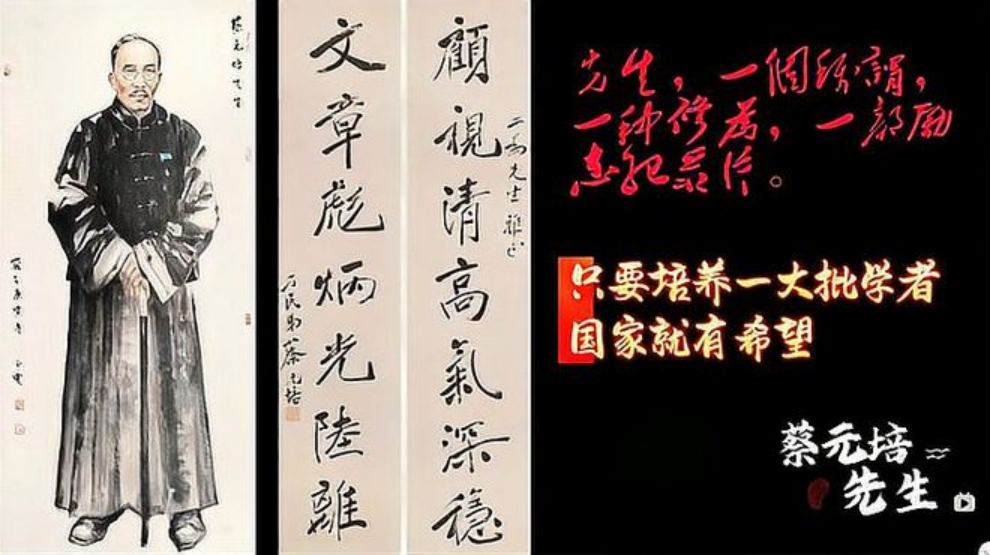 蔡元培先生
顧視清高氣深穩
文章彪炳光陸離
先生雅正
蔡元培
先生，一個稱謂，
一种修为，一部励
志纪录片。
只要培养一大批学者
国家就有希望
蔡元培
先生